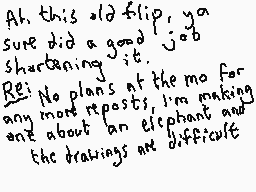 Ah this old flip, ya
sure did a good job
shortening it.
Re: No plans at the mo for
any more reposts, I'm making
one about an elephant and
the drawings are difficult